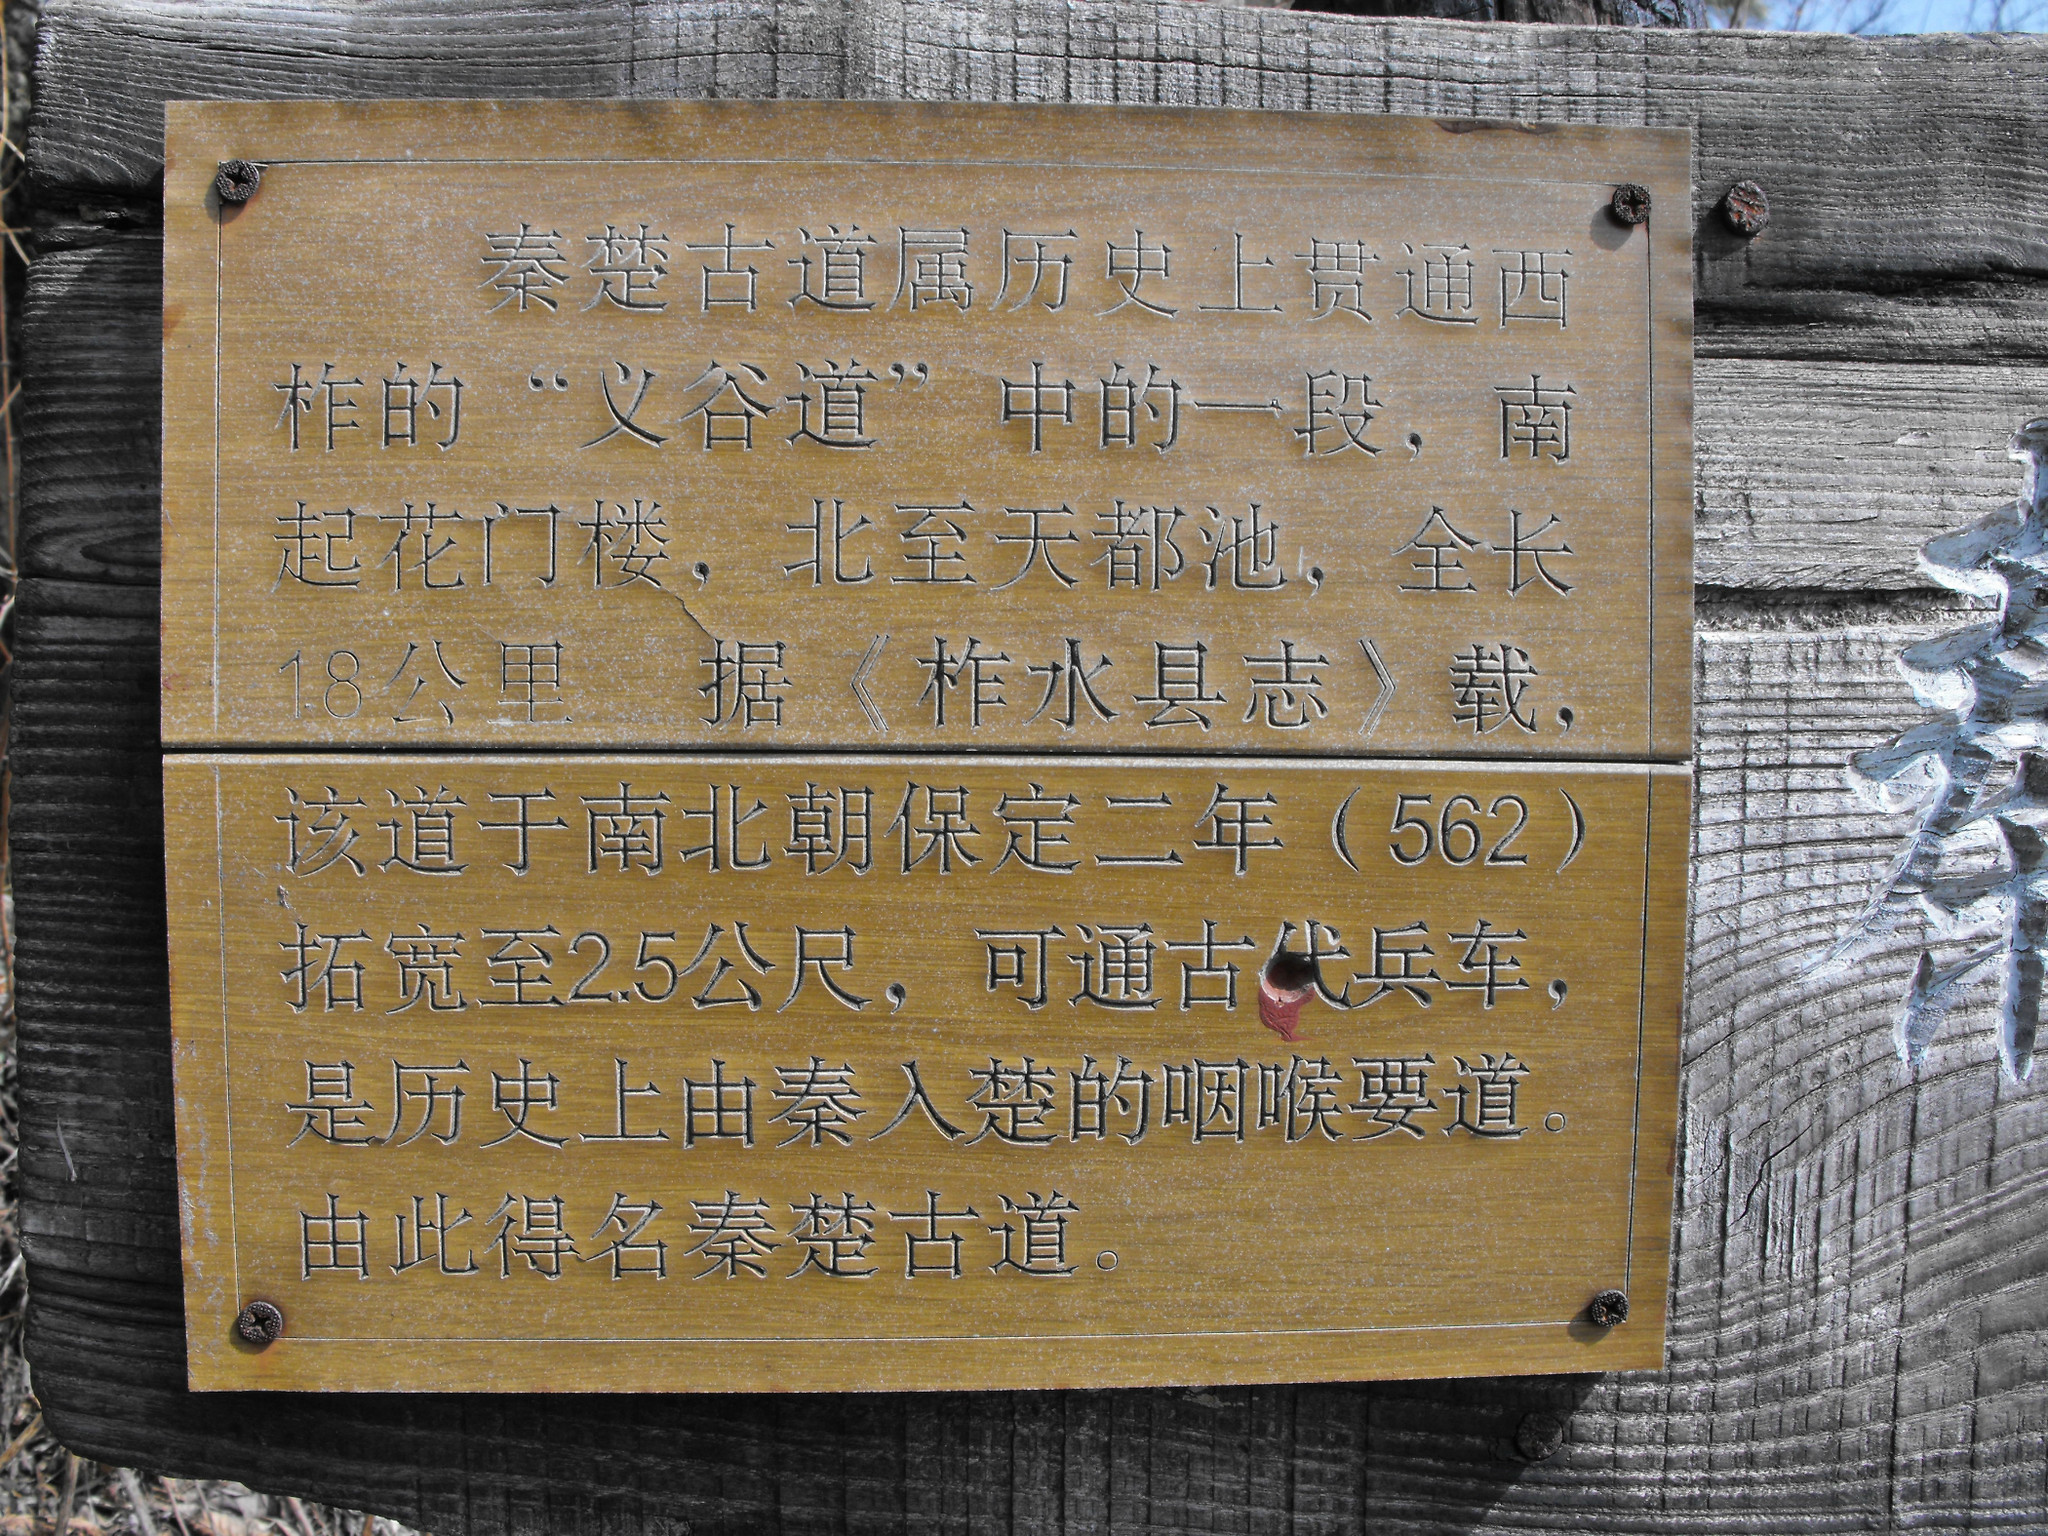 秦楚古道属历史上贯通西
柞的“义谷道”中的一段，南
起花门楼，北至天都池，全长
1.8公里 据《柞水县志》载，
该道于南北朝保定二年（562）
拓宽至2.5公尺，可通古代兵车，
是历史上由秦入楚的咽喉要道。
由此得名秦楚古道。